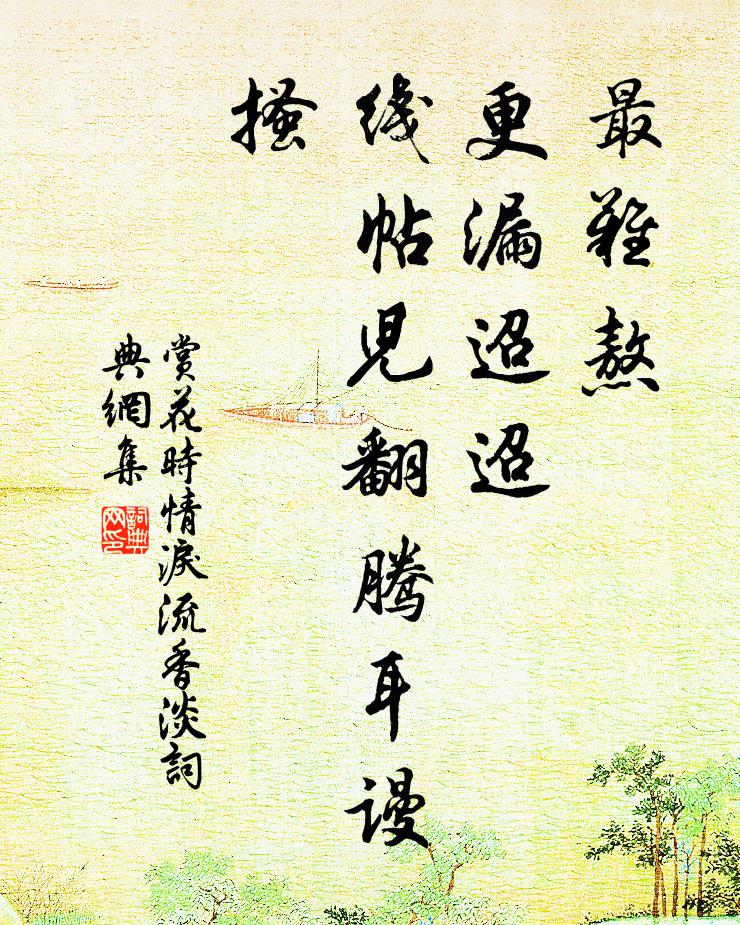 最難熬
更漏迢迢
线帖儿翻騰耳谩
搔
賞花時情淚流香淡詞
典網集
詞典网印